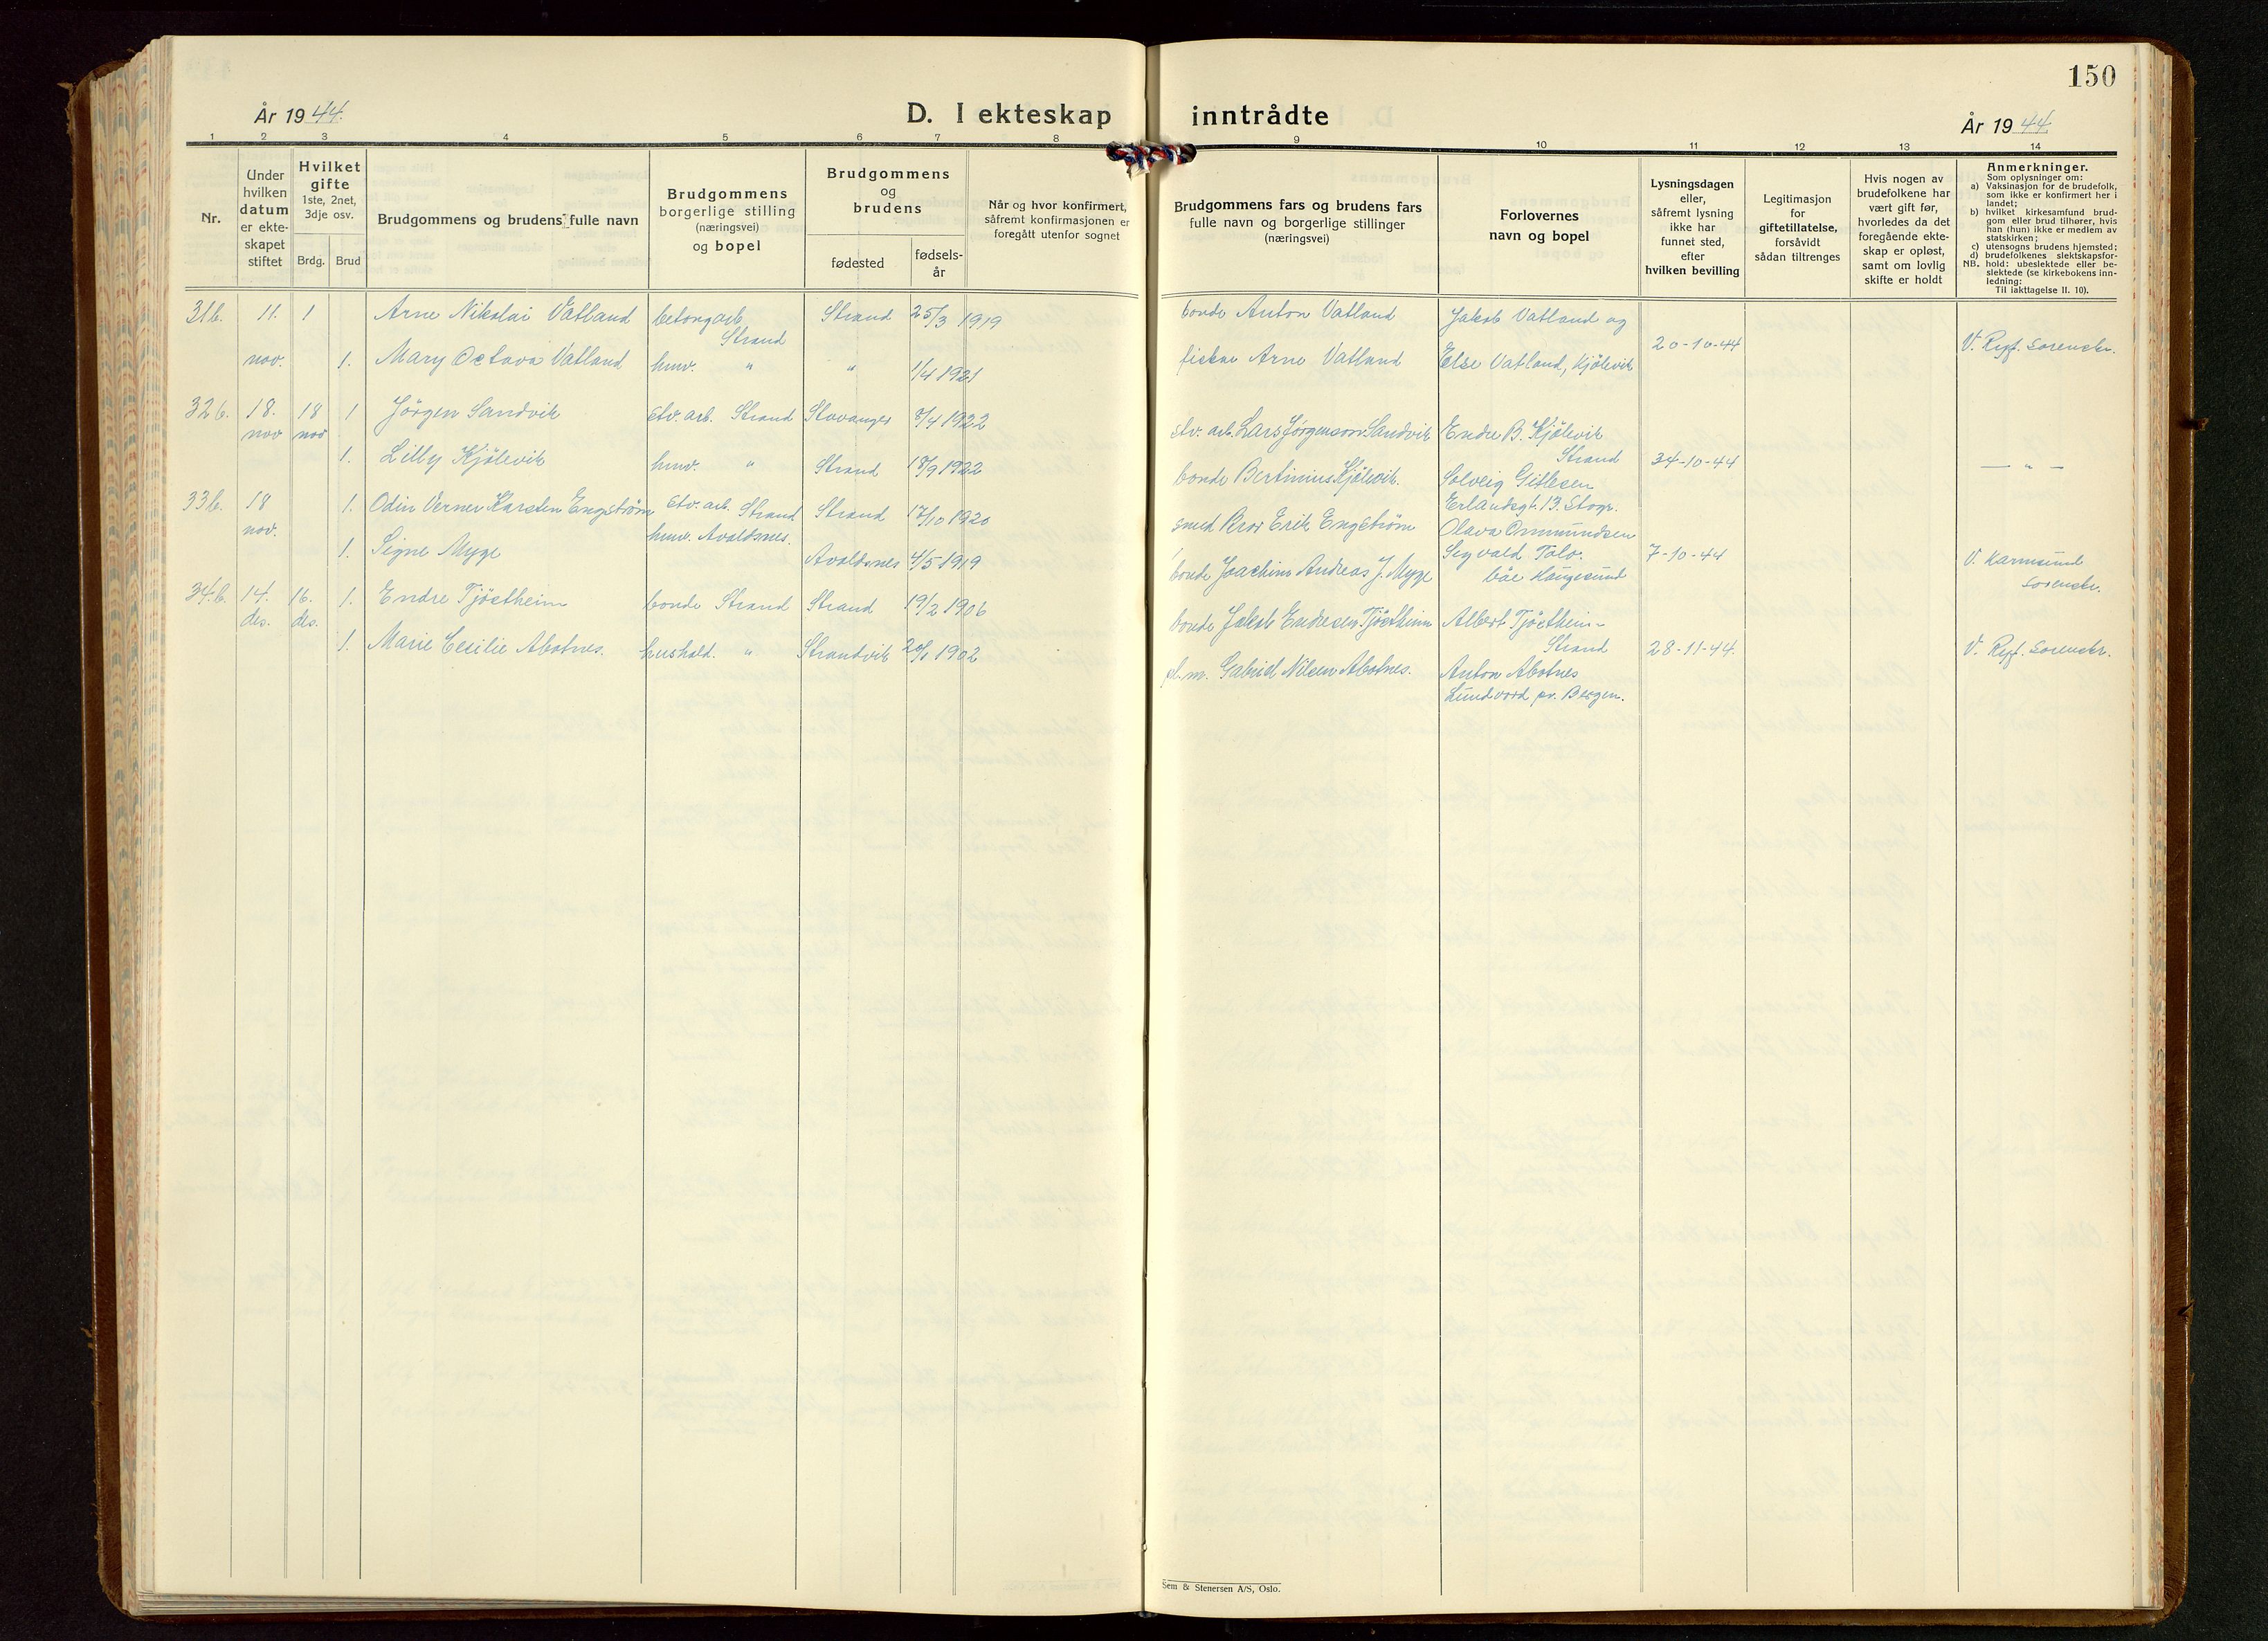 150
År 1944.
D. I ekteskap inntrådte
År 1944.
1 2 3 4 5 6 7 8 9 10 11 12 13 14
Nr.
Under
hvilken
datum
er ekte-
skapet
stiftet
Hvilket
gifte
1ste, 2net,
3dje osv.
Brdg. Brud
Brudgommens og brudens fulle navn
Brudgommens
borgerlige stilling
(næringsvei)
og bopel
Brudgommens
og
brudens
fødested
fødsels-
år
Når og hvor konfirmert,
såfremt konfirmasjonen er
foregått utenfor sognet
Brudgommens fars og brudens fars
fulle navn og borgerlige stillinger
(næringsvei)
Forlovernes
navn og bopel
Lysningsdagen
eller,
såfremt lysning
ikke har
funnet sted,
efter
hvilken bevilling
Legitimasjon
for
giftetillatelse,
forsåvidt
sådan tiltrenges
Hvis nogen av
brudefolkene har
vært gift før,
hvorledes da det
foregående ekte-
skap er opløst,
samt om lovlig
skifte er holdt
Anmerkninger.
Som oplysninger om:
a) Vaksinasjon for de brudefolk,
som ikke er konfirmert her i
landet;
b) hvilket kirkesamfund brud-
gom eller brud tilhører, hvis
han (hun) ikke er medlem av
statskirken;
c) utensogns brudens hjemsted;
d) brudefolkenes slektskapsfor-
NB. hold: ubeslektede eller be-
slektede (se kirkebokens inn-
ledning:
Til iakttagelse II. 10).
31b. 11. 1 Arne Nikolai Vatland betongarb Strand 25/3 1919 bonde Anton Vatland Jakob Vatland og
Strand 20-10-44 V. Ryf. Sorenskr.
nov. 1. Mary Octava Vatland husv. " " 1/4 1921 fisker Arne Vatland Else Vatland, Kjölevik
32b. 18. 18 1 Jörgen Sandvik stv. arb. Strand Stavanger 8/4 1922 stv. arb. Lars Jörgenson Sandvik Endre B. Kjölevik
nov nov Strand
1. Lilly Kjölevik husv. " Strand 18/9 1922 bonde Bertinius Kjölevik. Solveig Gitlesen 34-10-44 — " —
Erlandsgt. 13. Stvgr.
33b. 18 1. Odin Verner Karsten Engström stv. arb. Strand Strand 17/10 1920 smed Bror Erik Engström Olava Ommundsen
nov. husv. Avaldsnes.
1. Signe Myge Avaldsnes 4/5 1919 bonde Joachim Andreas J. Myge Sigvald Tolo. 7-10-44 V. Karmsund
Haugesund Sorenskr.
34.b. 14. 16. 1. Endre Tjöstheim bonde Strand Strand 19/2 1906 bonde Jakob Endresen Tjöstheim Albert Tjöstheim
des. des. Strand
1. Marie Cecilie Abotnes. hushold. " Strandvik 20/1 1902 Gabriel Nilsen Abotnes. Anton Abotnes 28-11-44. V. Ryf. Sorenskr.
pr. Bergen.
Sem & Stenersen A/S, Oslo.